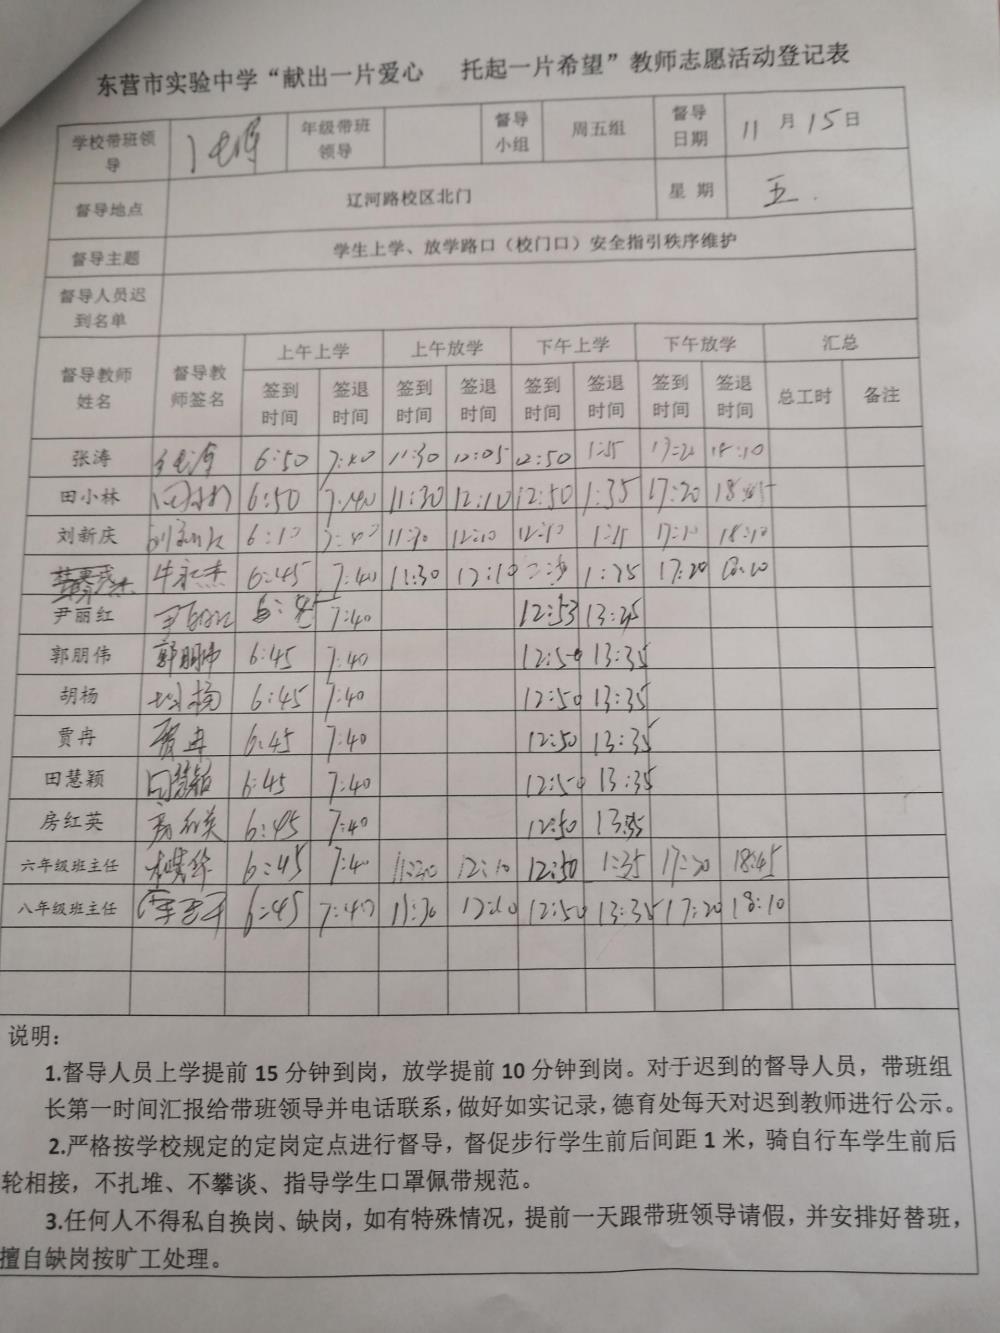 东营市实验中学“献出一片爱心 托起一片希望”教师志愿活动登记表
学校带班领导 年级带班领导 督导小组 周五组 督导日期 11月15日
督导地点 辽河路校区北门 星期 五.
督导主题 学生上学、放学路口（校门口）安全指引秩序维护
督导人员迟到名单
督导教师姓名 督导教师签名 上午上学 上午放学 下午上学 下午放学 汇总
签到时间 签退时间 签到时间 签退时间 签到时间 签退时间 签到时间 签退时间 总工时 备注
张涛 6:50 7:40 11:30 12:05 12:50 1:35 17:20 18:10
田小林 田小林 6:50 7:40 11:30 12:10 12:50 1:35 17:20
刘新庆 刘新庆 6:10 7:40 11:30 12:10 12:50 1:35 17:10 18:10
牛永杰 6:45 7:40 11:30 12:10 1:35 17:20
尹丽红 尹丽红 7:40 12:53 13:35
郭朋伟 郭朋伟 6:45 7:40 12:50 13:35
胡杨 胡杨 6:45 7:40 12:50 13:35
贾冉 贾冉 6:45 7:40 12:50 13:35
田慧颖 田慧颖 6:45 7:40 12:50 13:35
房红英 房红英 6:45 7:40 12:50 13:35
六年级班主任 6:45 7:40 11:30 12:10 12:50 1:35 17:20 18:45
八年级班主任 6:45 7:40 11:30 12:10 12:50 13:35 17:20 18:10
说明：
1.督导人员上学提前15分钟到岗，放学提前10分钟到岗。对于迟到的督导人员，带班组
长第一时间汇报给带班领导并电话联系，做好如实记录，德育处每天对迟到教师进行公示。
2.严格按学校规定的定岗定点进行督导，督促步行学生前后间距1米，骑自行车学生前后
轮相接，不扎堆、不攀谈、指导学生口罩佩带规范。
3.任何人不得私自换岗、缺岗，如有特殊情况，提前一天跟带班领导请假，并安排好替班，
擅自缺岗按旷工处理。